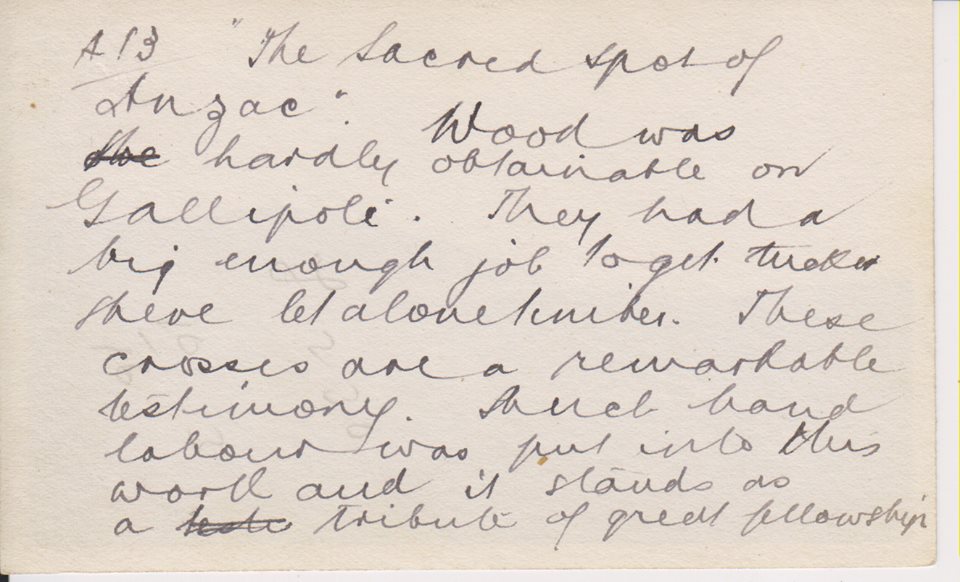 A 13 "The Sacred spot of
Anzac". Wood was
~~the~~ hardly obtainable on
Gallipoli. They had a
big enough job to get tucker
there let alone timber. These
crosses are a remarkable
testimony. Much hand
labour was put into this
work and it stands as
a ~~test~~ tribute of great fellowship